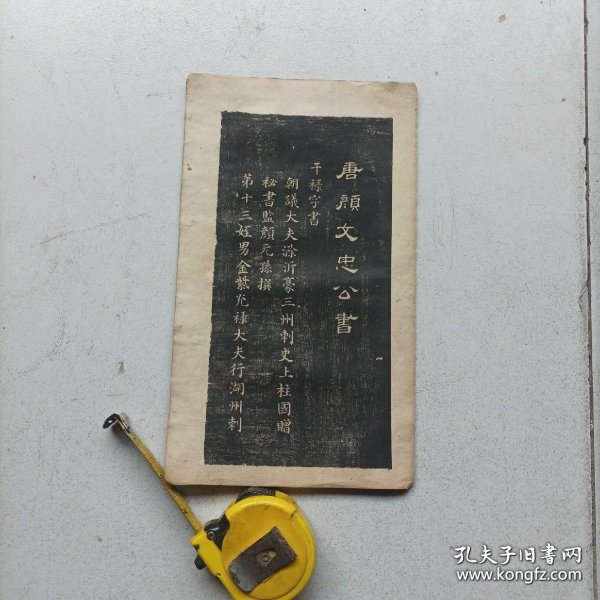 唐顔文忠公書
干禄字書
朝議大夫滁沂豪三州刺史上柱國贈
秘書監顔元孫撰
第十三姪男金紫光禄大夫行湖州刺
孔夫子旧书网
www.kongfz.com